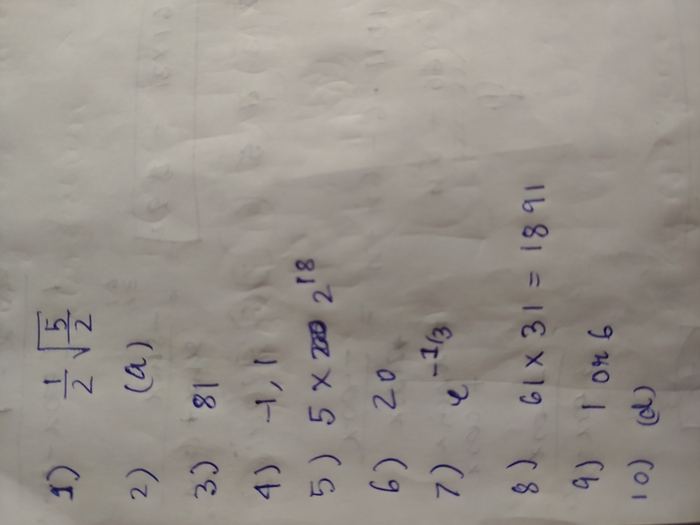 1) 1/2 √5/2
2) (a)
3) 81
4) -1, 1
5) 5 × 2^18
6) 20
7) e^-1/3
8) 61 × 31 = 1891
9) 1 or 6
10) (d)